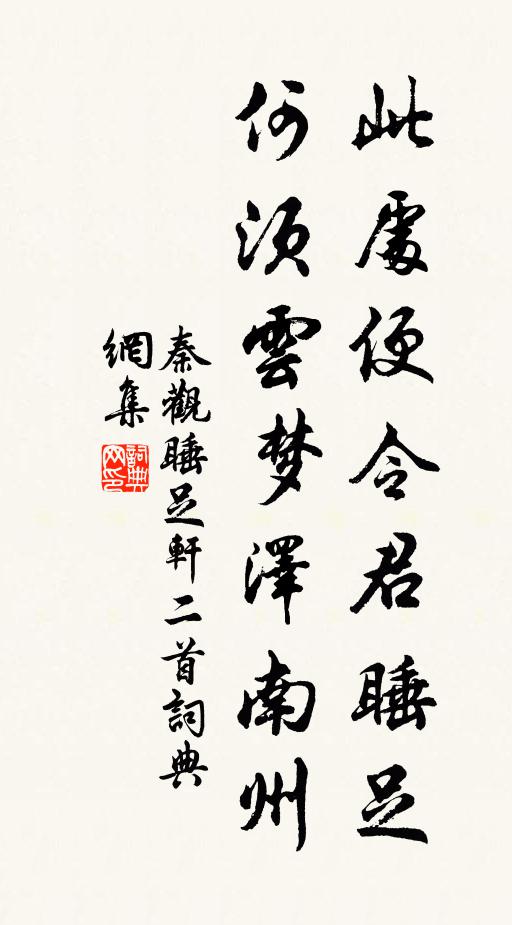 此處便令君睡足
何須雲梦澤南州
秦觀睡足軒二首詞典
網集
詞典
网印